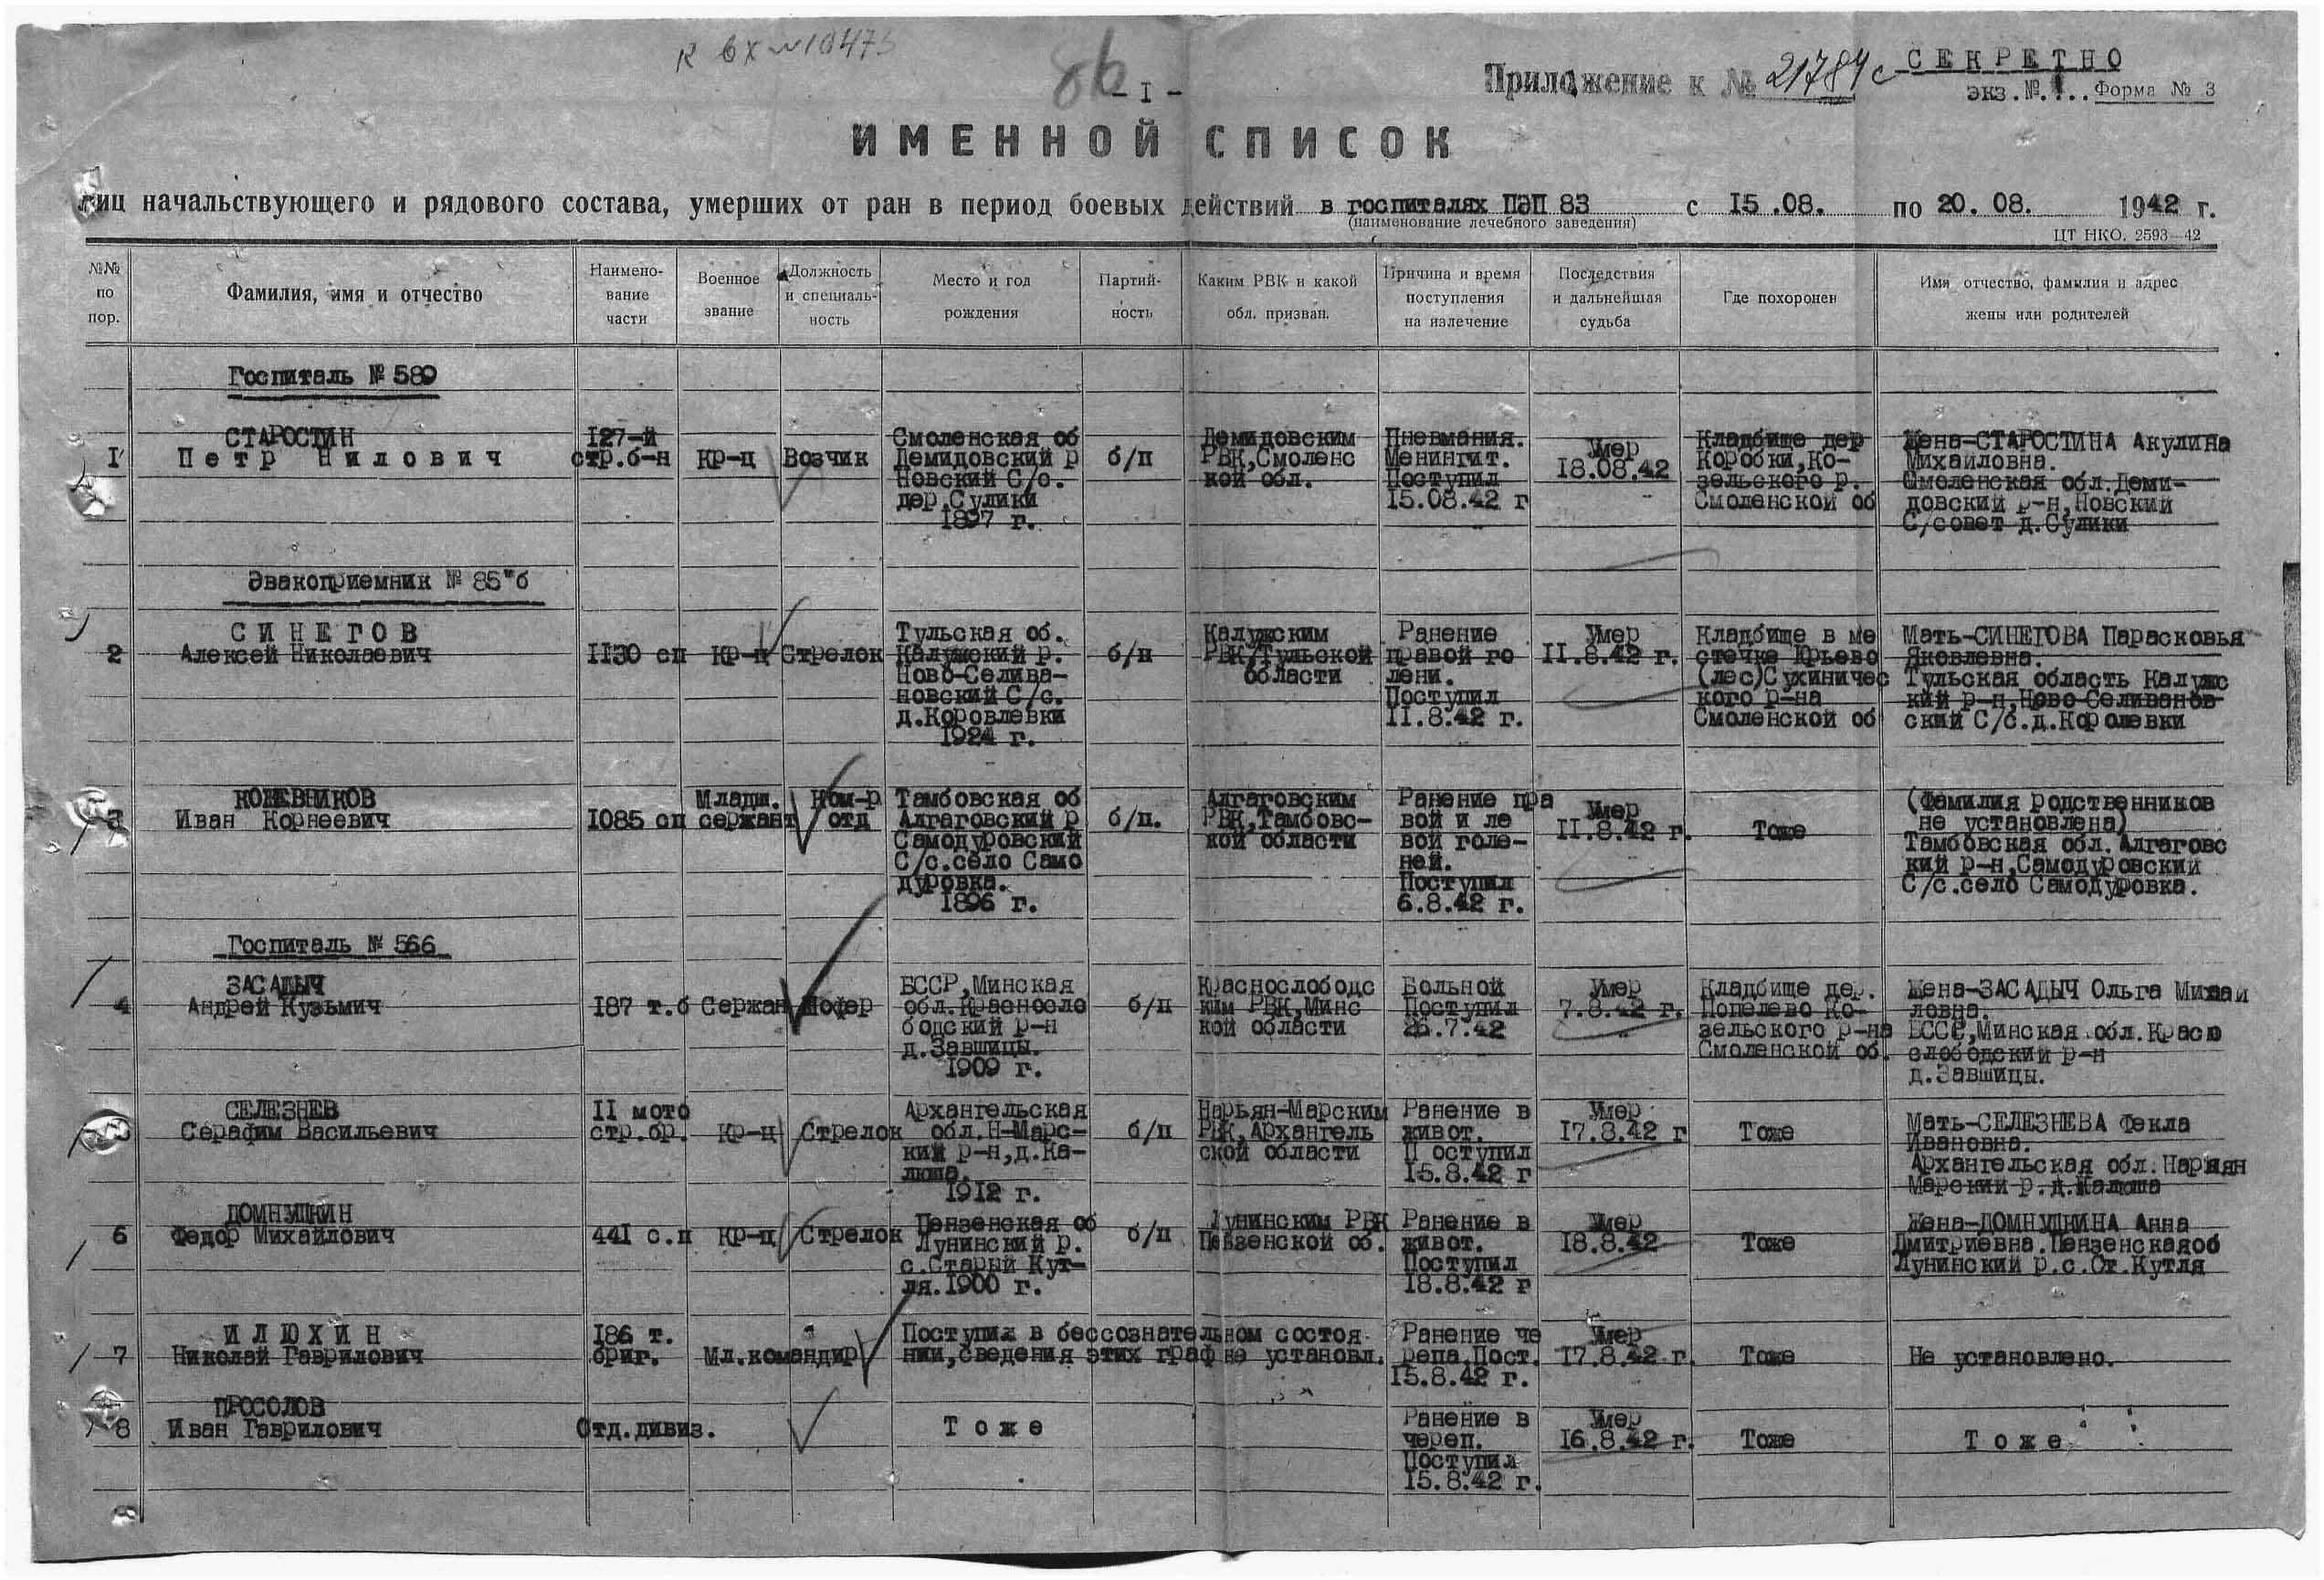 к вх №10473
86
- I -
Приложение к № 21784с
СЕКРЕТНО
экз.№ 1.. Форма № 3
ИМЕННОЙ СПИСОК
лиц начальствующего и рядового состава, умерших от ран в период боевых действий в госпиталях ПЭП 83 с 15.08. по 20.08. 1942 г.
(наименование лечебного заведения)
ЦТ НКО. 2593—42
№№
по
пор.
Фамилия, имя и отчество
Наимено-
вание
части
Военное
звание
Должность
и специаль-
ность
Место и год
рождения
Партий-
ность
Каким РВК и какой
обл. призван.
Причина и время
поступления
на излечение
Последствия
и дальнейшая
судьба
Где похоронен
Имя отчество, фамилия и адрес
жены или родителей
Госпиталь № 589
1
СТАРОСТИН
Петр Нилович
127-й
стр.б-н
Кр-ц
Возчик
Смоленская об
Демидовский р
Новский С/с.
дер.Сулики
1897 г.
б/п
Демидовским
РВК,Смоленс
кой обл.
Пневмания.
Менингит.
Поступил
15.08.42 г
Умер
18.08.42
Кладбище дер
Коробки,Ко-
зельского р.
Смоленской об
Жена-СТАРОСТИНА Акулина
Михайловна.
Смоленская обл.Деми-
довский р-н,Новский
С/совет д.Сулики
Эвакоприемник № 85"б
2
СИНЕГОВ
Алексей Николаевич
1130 сп
Кр-ц
Стрелок
Тульская об.
Калужский р.
Ново-Селива-
новский С/с.
д.Коровлевки
1924 г.
б/п
Калужским
РВК,Тульской
области
Ранение
правой го
лени.
Поступил
11.8.42 г.
Умер
11.8.42 г.
Кладбище в ме
стечке Юрьево
(лес)Сухиничес
кого р-на
Смоленской об
Мать-СИНЕГОВА Парасковья
Яковлевна.
Тульская область Калужс
кий р-н,Ново-Селиванов-
ский С/б.д.Королевки
3
КОЖЕВНИКОВ
Иван Корнеевич
1085 сп
Младш.
сержант
Ком-р
отд
Тамбовская об
Алгаговский р
Самодуровский
С/с.село Само
дуровка.
1896 г.
б/п.
Алгаговским
РВК,Тамбовс-
кой области
Ранение пра
вой и ле
вой голе-
ней.
Поступил
6.8.42 г.
Умер
11.8.42 г.
Тоже
(Фамилия родственников
не установлена)
Тамбовская обл.Алгаговс
кий р-н,Самодуровский
С/с.село Самодуровка.
Госпиталь № 566
4
ЗАСАДЫЧ
Андрей Кузьмич
187 т.б
Сержан
Шофер
БССР,Минская
обл.Краснослo
бодский р-н
д.Завшицы.
1909 г.
б/п
Краснослободс
ким РВК,Минс
кой области
Больной
Поступил
26.7.42
Умер
7.8.42 г.
Кладбище дер.
Попелево Ко-
зельского р-на
Смоленской об.
Жена-ЗАСАДЫЧ Ольга Михай
ловна.
БССР,Минская обл.Красно
слободский р-н
д.Завшицы.
СЕЛЕЗНЕВ
Серафим Васильевич
11 мото
стр.бр.
Кр-ц
Стрелок
Архангельская
обл.Н-Марс-
кий р-н,д.Ка-
люша.
1912 г.
б/п
Нарьян-Марским
РВК,Архангель
ской области
Ранение в
живот.
Поступил
15.8.42 г
Умер
17.8.42 г
Тоже
Мать-СЕЛЕЗНЕВА Фекла
Ивановна.
Архангельская обл.Нарьян
Марский р.д.Калюша
6
ДОМНУШКИН
Федор Михайлович
441 с.п
Кр-ц
Стрелок
Пензенская об
Лунинский р.
с.Старый Кут-
ля.1900 г.
б/п
Лунинским РВК
Пензенской об.
Ранение в
живот.
Поступил
18.8.42 г
Умер
18.8.42
Тоже
Жена-ДОМНУШКИНА Анна
Дмитриевна.Пензенскаяоб
Лунинский р.с.Ст.Кутля
7
ИЛЮХИН
Николай Гаврилович
186 т.
бриг.
Мл.командир
Поступил в бессознательном состоя
нии,сведения этих граф не установл.
Ранение че
репа,Пост.
15.8.42 г.
Умер
17.8.42 г.
Тоже
Не установлено.
8
ПРОСОЛОВ
Иван Гаврилович
Отд.дивиз.
Тоже
Ранение в
череп.
Поступил
15.8.42 г.
Умер
16.8.42 г.
Тоже
Тоже